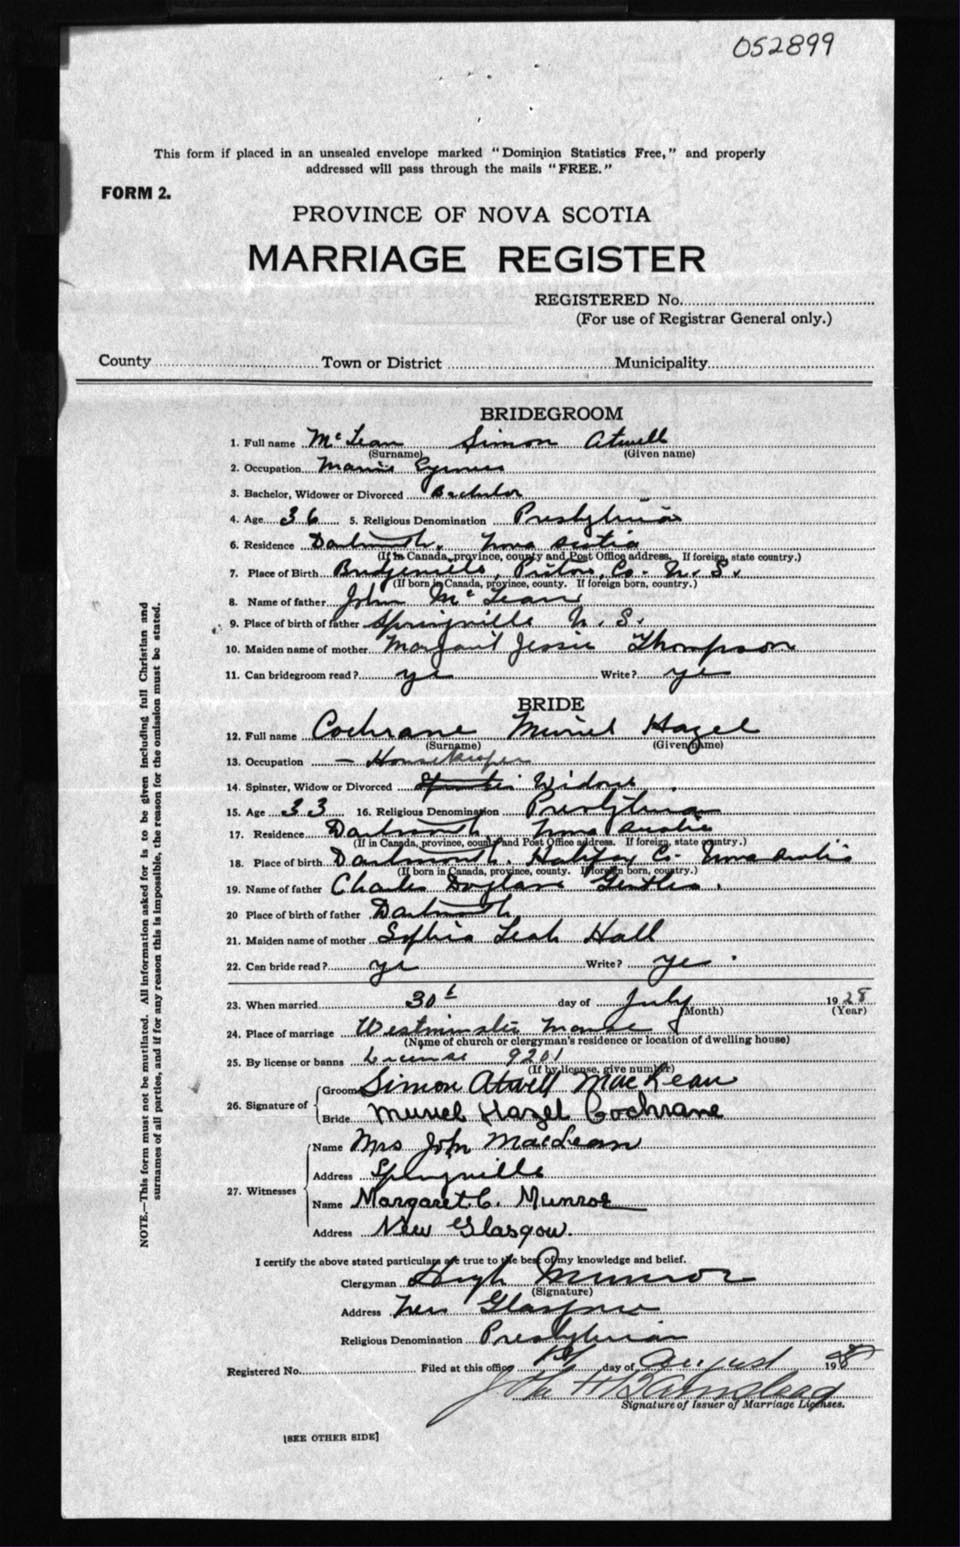 052899
This form if placed in an unsealed envelope marked "Dominion Statistics Free," and properly
addressed will pass through the mails "FREE."
FORM 2.
PROVINCE OF NOVA SCOTIA
MARRIAGE REGISTER
REGISTERED No.
(For use of Registrar General only.)
County Town or District Municipality
BRIDEGROOM
1. Full name McLean Simon Atwell
(Surname) (Given name)
2. Occupation Marine
3. Bachelor, Widower or Divorced Bachelor
4. Age 36 5. Religious Denomination Presbyterian
6. Residence Dartmouth, Nova Scotia
(If in Canada, province, county and Post Office address. If foreign, state country.)
7. Place of Birth Bridgeville, Pictou, Co. N. S.
(If born in Canada, province, county. If foreign born, country.)
8. Name of father John McLean
9. Place of birth of father Springville N. S.
10. Maiden name of mother Margaret Jessie Thompson
11. Can bridegroom read? yes Write? yes
BRIDE
12. Full name Cochrane Muriel Hazel
(Surname) (Given name)
13. Occupation — Housekeeper
14. Spinster, Widow or Divorced Spinster Widow
15. Age 33 16. Religious Denomination Presbyterian
17. Residence Dartmouth Nova Scotia
(If in Canada, province, county and Post Office address. If foreign, state country.)
18. Place of birth Dartmouth, Halifax Co. Nova Scotia
(If born in Canada, province, county. If foreign born, country.)
19. Name of father Charles Gentles.
20 Place of birth of father Dartmouth
21. Maiden name of mother Sophia Leah Hall
22. Can bride read? yes Write? yes.
23. When married 30t day of July 1928
(Month) (Year)
24. Place of marriage Westminster Manse
(Name of church or clergyman's residence or location of dwelling house)
25. By license or banns License 9201
(If by license, give number)
26. Signature of Groom Simon Atwell MacLean
Bride Muriel Hazel Cochrane
27. Witnesses Name Mrs John MacLean
Address Springville
Name Margaret C. Munroe
Address New Glasgow.
I certify the above stated particulars are true to the best of my knowledge and belief.
Clergyman Hugh Munroe
(Signature)
Address New Glasgow
Religious Denomination Presbyterian
Registered No. Filed at this office 1st day of August 1928
Signature of Issuer of Marriage Licenses.
[SEE OTHER SIDE]
NOTE.—This form must not be mutilated. All information asked for is to be given including full Christian and
surnames of all parties, and if for any reason this is impossible, the reason for the omission must be stated.